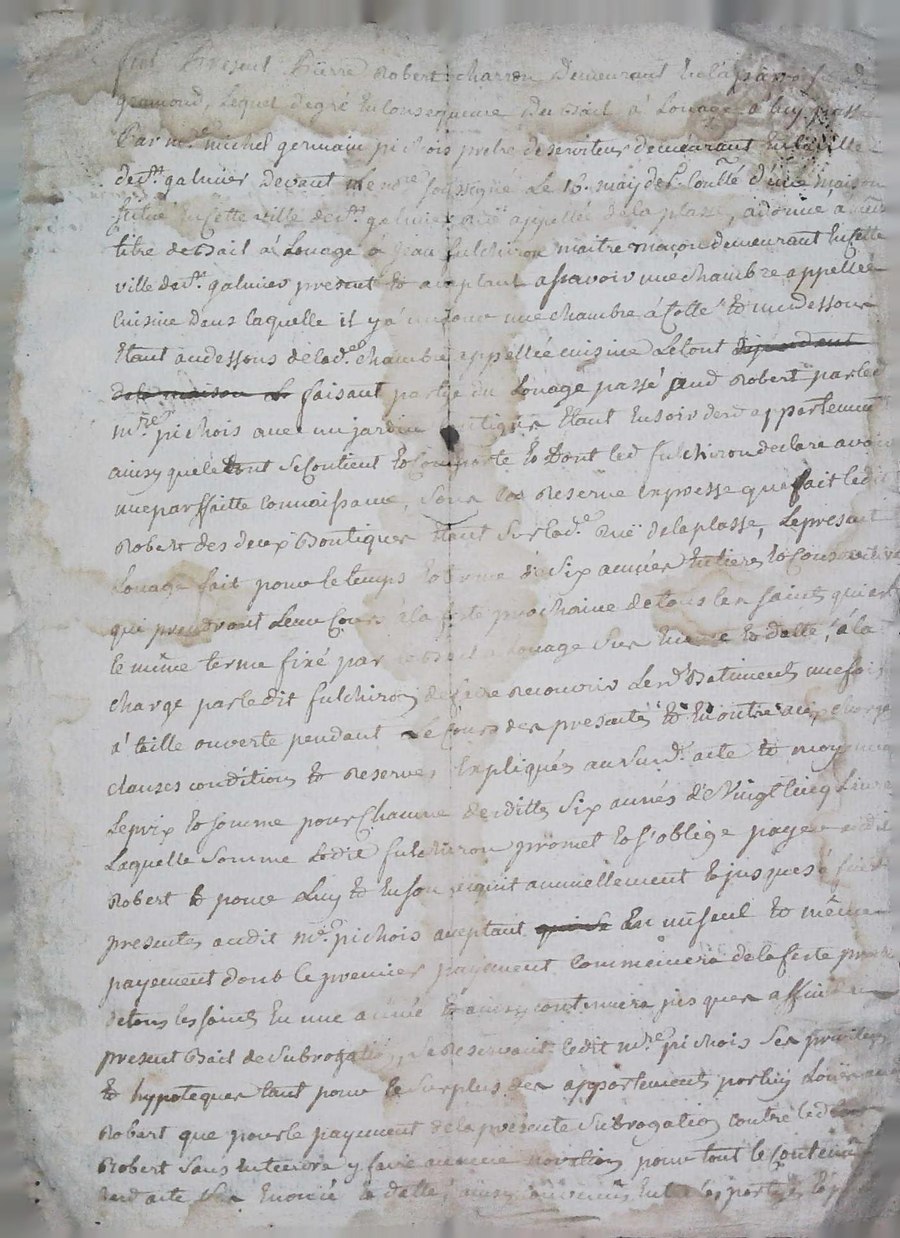 fut Présent Pierre Robert charron demeurant en la parroisse
gramond, Lequel de gré en Consequence du bail à Louage a luy passé
Par mre michel germain pichois pretre deserviteur demeurant en la ville
de st galmier devant le nore soussigné Le 16 may der Contlé d'une maison
située en cette ville de st galmier rue appellée de la plasse, a donné à
titre de bail à Louage à jean fulchiron maitre maçon demeurant en cette
ville de st galmier present et aceptant assavoir une chambre appellée
cuisine dans laquelle il y a un une chambre à Cotté et un dessous
Etant audessous de lad. chambre appellée cuisine Le tout dependent
de la maison et faisant partie du Louage passé aud Robert par led
mre pichois avec un jardin Etant en soir desd appartement
ainsy que le tout se Contient et Comporte et dont led fulchiron declare avoir
une parffaitte Connaissance, sous la Reserve expresse que fait ledit
Robert des deux Boutiques Etant sur lad. Rue de la plasse, Le present
Louage fait pour le temps et terme de six années Entieres et Consecutives
qui prendront Leur Cours à la fete prochaine de tous les saints qui est
le même terme fixé par le bail a Louage sus Enoncé et datté, à la
charge par ledit fulchiron de faire recouvrir Lesd Batiments une fois
à taille ouverte pendant Le Cours des presentes et En outre aux charges
clauses conditions et Reserves Expliqués au susd. acte et moyennant
Le prix et somme pour Chacune desdittes six années de Vingt Cinq Livres
Laquelle somme Ledit fulchiron promet et s'oblige payer audit
Robert et pour Luy et En son acquit annuellement et jusques à fin des
presentes audit mre pichois aceptant En un seul et même
payement dont le premier payement Commencera de la feste prochaine
de tous les saints En une année et ainsy continuera jusques affin du
present Bail de Subrogation, se Reservant ledit mre pichois ses privileges
et hypoteques tant pour le surplus des appartements par luy Loués audit
Robert que pour le payement de la presente Subrogation contre led
Robert sans Entendre y faire aucune novation pour tout le Contenu
aud acte sus Enoncé et datté, ainsy Convenu Entre les parties